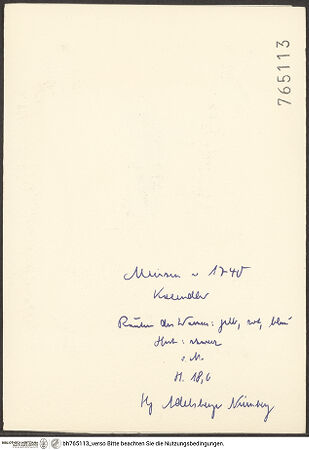 765113
Meissen v 1740
Kaendler
Rauten des Wappen: gelb, rot, blau
Hut: schwarz
o. M.
H. 18,6
Hg Adelsberger Nürnberg
bh765113_verso Bitte beachten Sie die Nutzungsbedingungen.